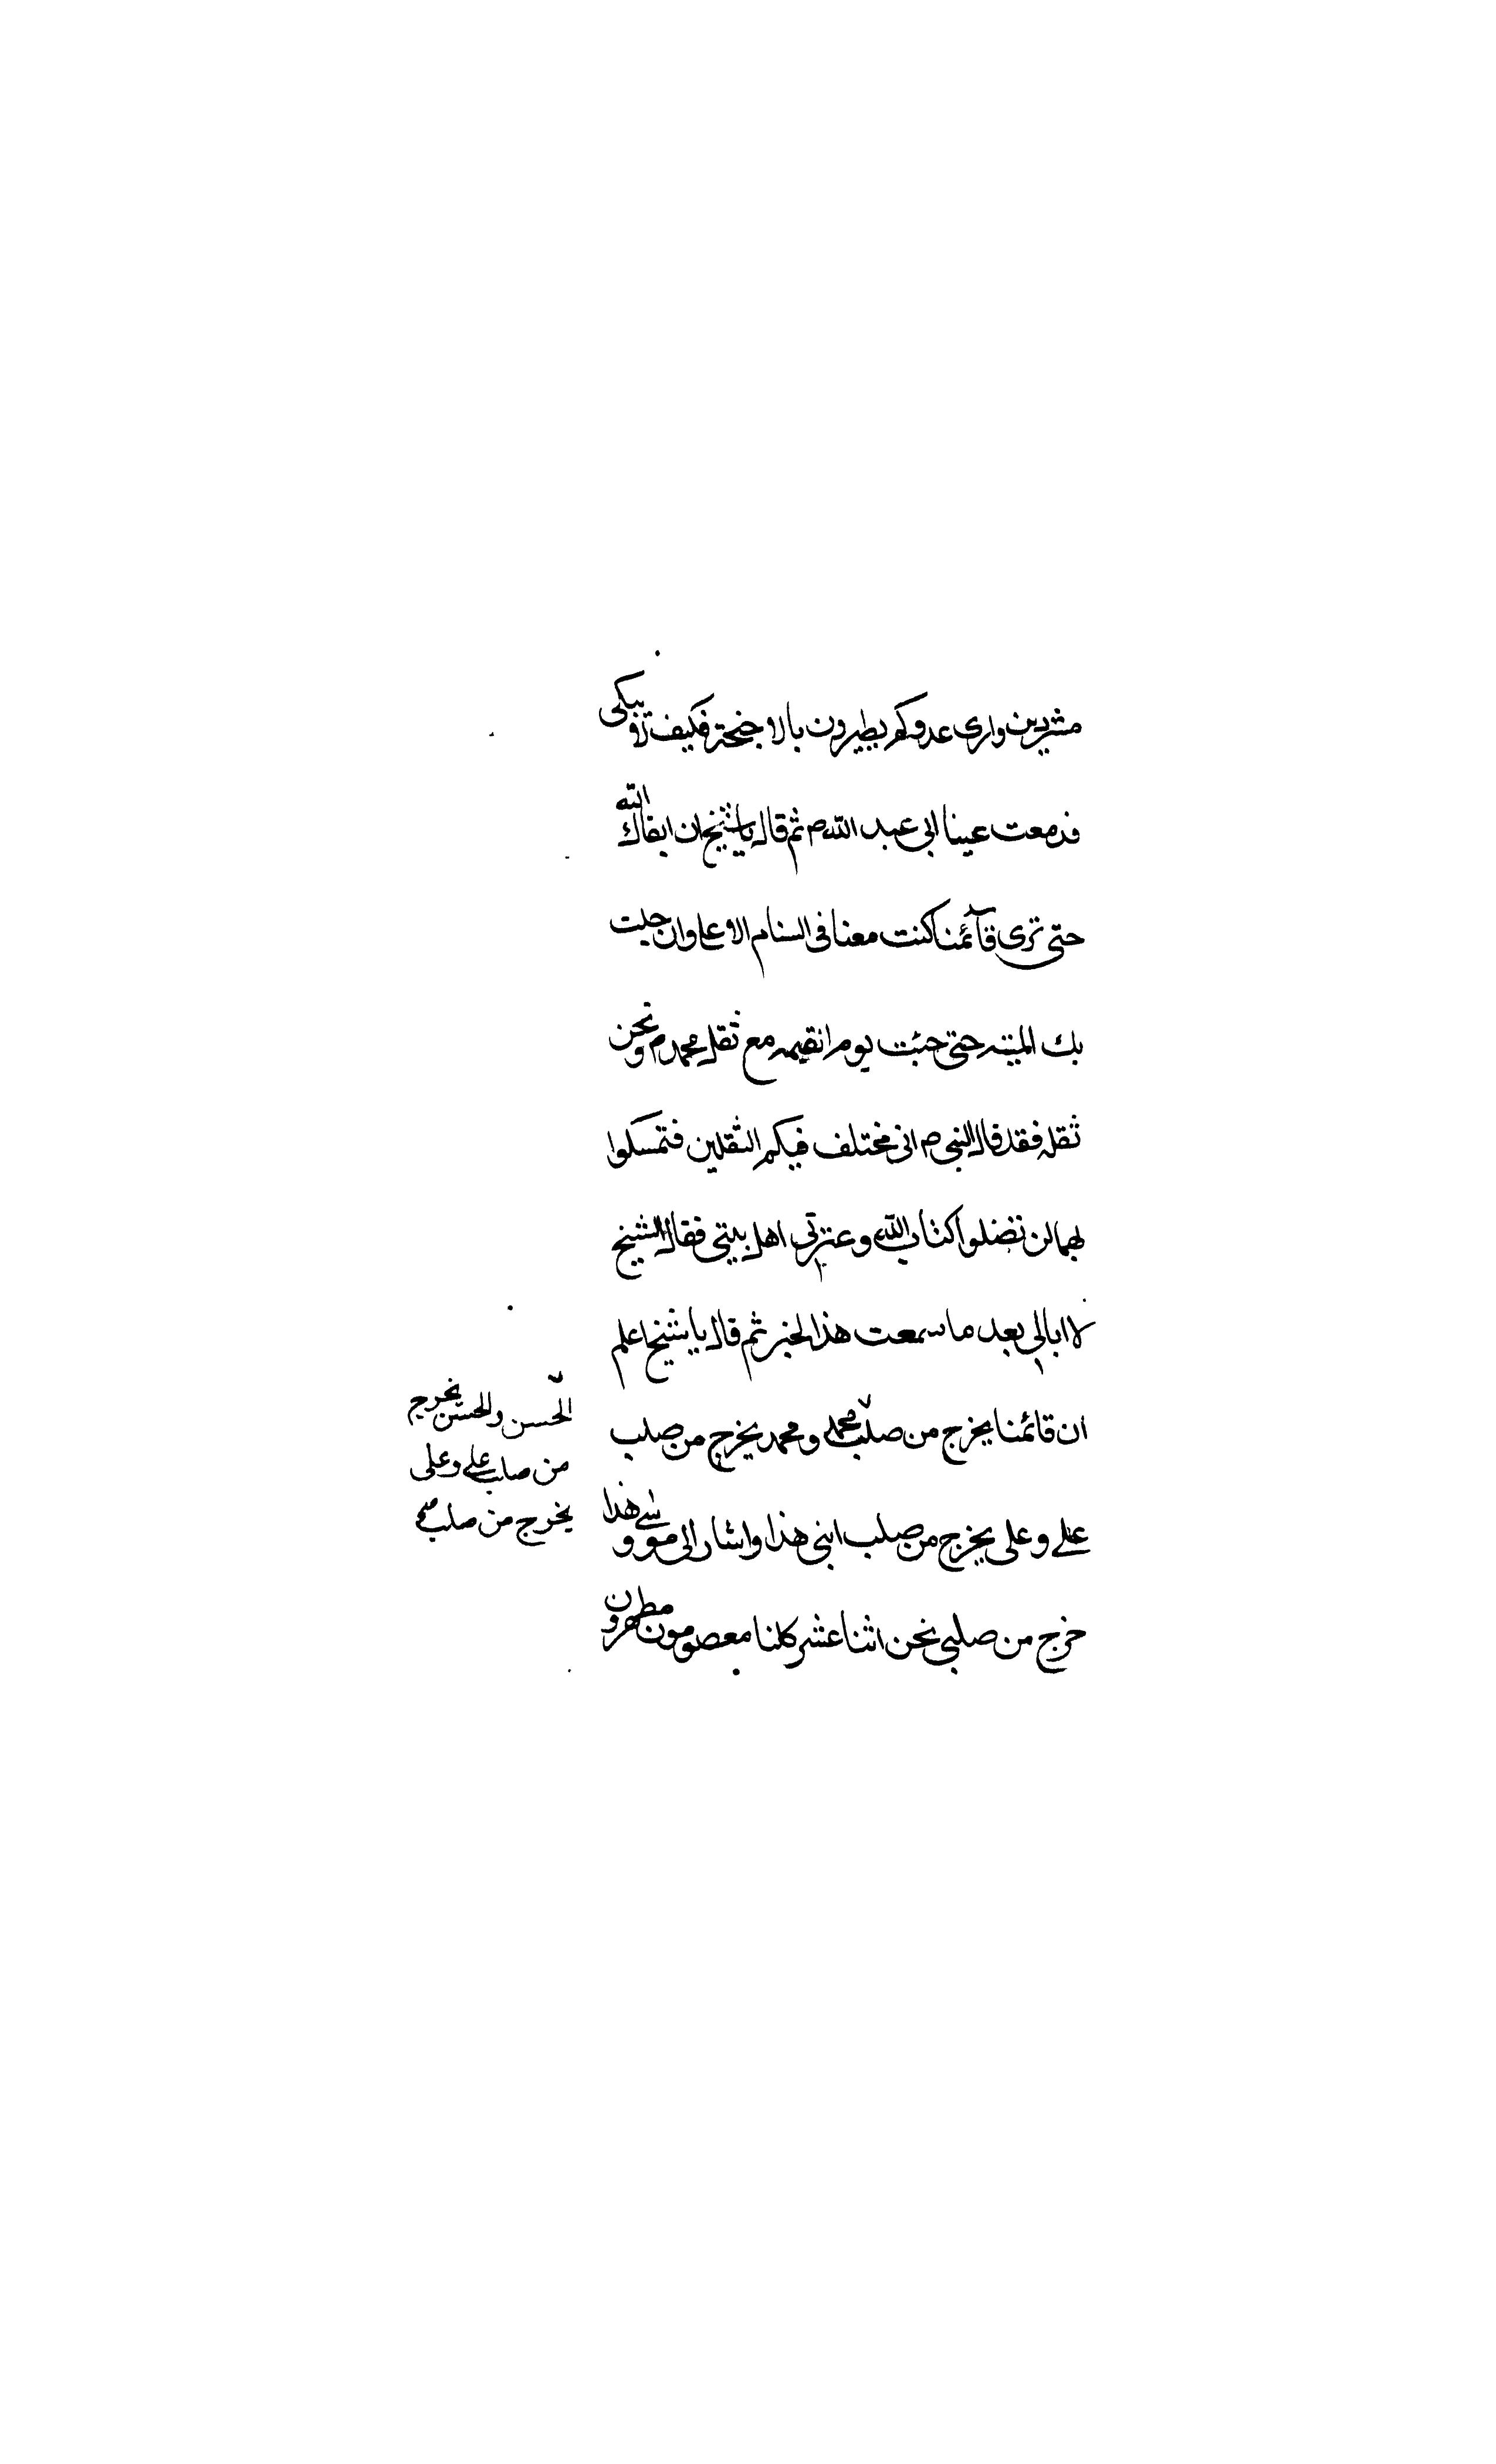 مشردين وارى عدوكم يطيرون بالاجنحة فكيف لا ابكى
فدمعت عينا ابى عبد الله ص ثم قال يا شيخ ان ابقاك الله
حتى ترى قآئمنا كنت معنا فى السنام الاعلى وان حلت
بك المنية حتى جئت يوم القيمه مع ثقل محمد ص ونحن
ثقله فقد قال النبى ص انى مختلف فيكم الثقلين فتمسكوا
بهما لن تضلوا كتاب الله وعترتى اهل بيتى فقال الشيخ
لا ابالى بعد ما سمعت هذا الخبر ثم قال يا شيخ اعلم
ان قائمنا يخرج من صلب محمد ومحمد يخرج من صلب
على وعلى يخرج من صلب ابنى هذا واشار الى موسى وهذا
خرج من صلبى نحن اثنا عشر كلنا معصومون مطهرون
الحسن والحسن يخرج
من صلب على وعلى
يخرج من صلب